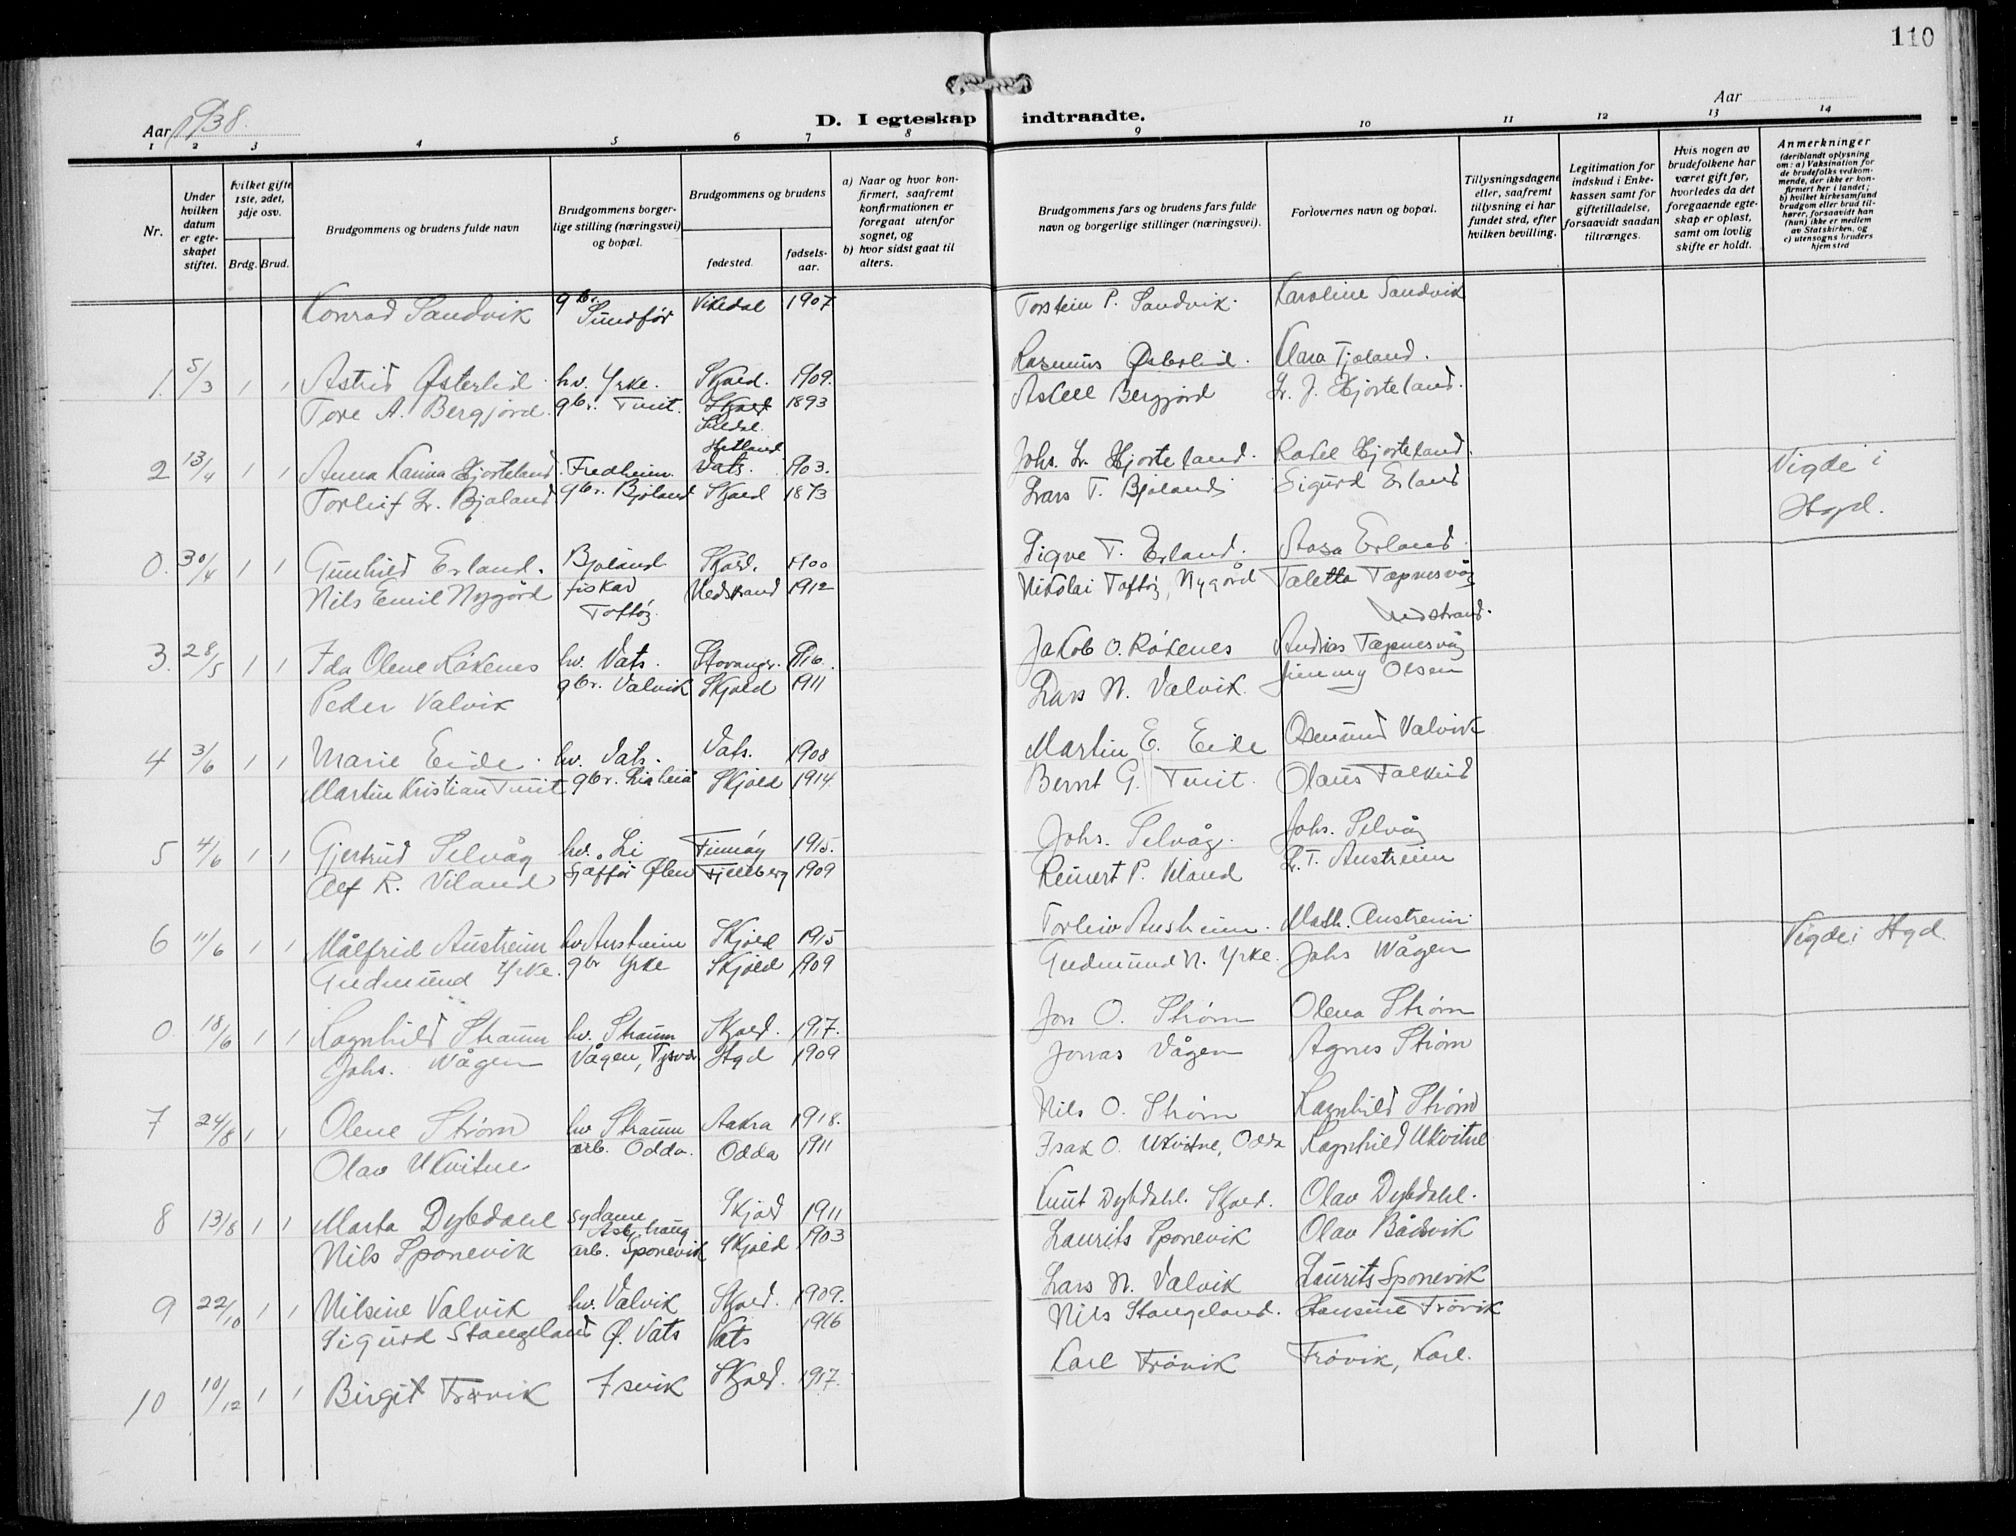 110
Aar 1938.
D. I egteskap indtraadte.
Aar
1 2 3 4 5 6 7 8 9 10 11 12 13 14
Nr.
Under hvilken datum er egteskapet stiftet.
Hvilket gifte 1ste, 2det, 3dje osv.
Brdg. Brud.
Brudgommens og brudens fulde navn
Brudgommens borgerlige stilling (næringsvei) og bopæl.
Brudgommens og brudens
fødested.
fødselsaar.
a) Naar og hvor konfirmert, saafremt konfirmationen er foregaat utenfor sognet, og
b) hvor sidst gaat til alters.
Brudgommens fars og brudens fars fulde navn og borgerlige stillinger (næringsvei).
Forlovernes navn og bopæl.
Tillysningsdagene eller, saafremt tillysning ei har fundet sted, efter hvilken bevilling.
Legitimation for indskud i Enkekassen samt for giftetilladelse, forsaavidt saadan tiltrænges.
Hvis nogen av brudefolkene har været gift før, hvorledes da det foregaaende egteskap er opløst, samt om lovlig skifte er holdt.
Anmerkninger (deriblandt oplysning om: a) Vaksination for de brudefolks vedkommende, der ikke er konfirmert her i landet; b) hvilket kirkesamfund brudgom eller brud tilhører, forsaavidt han (hun) ikke er medlem av Statskirken, og c) utensogns bruders hjemsted
Konrad Sandvik gbr. Sundfør Vikedal 1907 Torstein P. Sandvik. Karoline Sandvik
1. 5/3 1 1 Astrid Østerlid hv. Yrke. Skjold. 1909. Rasmus Østerlid. Klara Tjoland.
Tore A. Bergjord. gbr. Tuit. Skjold Suldal. 1893 Askell Bergjord L. J. Hjorteland.
2 13/4 1 1 Anna Karina Hjorteland. Fredheim. Hetland Vats. 1903. Johs. L. Hjorteland. Rakel Hjorteland.
Torleif L. Bjoland gbr. Bjoland Skjold 1873 Lars T. Bjoland Sigurd Erland Vigde i Hgd.
0. 30/4 1 1 Gunhild Erland. Bjoland Skjold. 1900 Sigve T. Erland. Aasa Erland.
Nils Emil Nygård fiskar Toftøy Nedstrand 1912 Nikolai Toftøy, Nygård Taletta Tapnesvåg Nedstrand.
3. 28/5 1 1 Ida Olene Råkenes hv. Vats. Stavanger. 1916. Jakob O. Råkenes Andreas Tapnesvåg
Peder Valvik gbr. Valvik Skjold 1911 Lars N. Valvik Jimmy Olsen
4 3/6 1 1 Marie Eide. hv. Vats. Vats. 1908 Martin E. Eide Osmund Valvik
Martin Kristian Tuit gbr. Liaheia Skjold 1914 Bernt G. Tuit. Olaus Falkeid
5 4/6 1 1 Gjertrud Selvåg hv. Li Finnøy 1915. Johs. Selvåg. Johs. Selvåg
Alf R. Viland sjåfør Ølen Fjellberg 1909 Reinert P. Viland L. T. Austreim
6 11/6 1 1 Målfrid Austreim hv Austreim Skjold 1915 Torleiv Austreim. Math. Austreim.
Gudmund Yrke. gbr Yrke Skjold 1909 Gudmund N. Yrke. Johs Vågen Vigde i Hgd.
0. 18/6 1 1 Ragnhild Straum hv. Straum Skjold. 1917. Jon O. Strøm Olena Strøm
Johs. Vågen Vågen, Tysvær Hgd 1909 Jonas Vågen Agnes Strøm
7 24/8 1 1 Olene Strøm hv Straum Aakra 1918. Nils O. Strøm Ragnhild Strøm
Olav Ukvitne arb. Odda. Odda 1911 Isak O. Ukvitne, Odda Ragnhild Ukvitne
8 13/8 1 1 Marta Dybdahl sydame Skjold 1911 Knut Dybdahl. Skjold. Olav Dybdahl.
Nils Sponevik arb. Sponevik Skjold 1903 Laurits Sponevik Olav Bådsvik
9 22/10 1 1 Nilsine Valvik hv. Valvik Skjold. 1909. Lars N. Valvik Laurits Sponevik
Sigurd Stangeland Ø. Vats Vats 1916 Nils Stangeland. Hansine Frøvik
10 10/12 1 1 Birgit Frøvik Isvik Skjold. 1917. Karl Frøvik Frøvik, Karl.